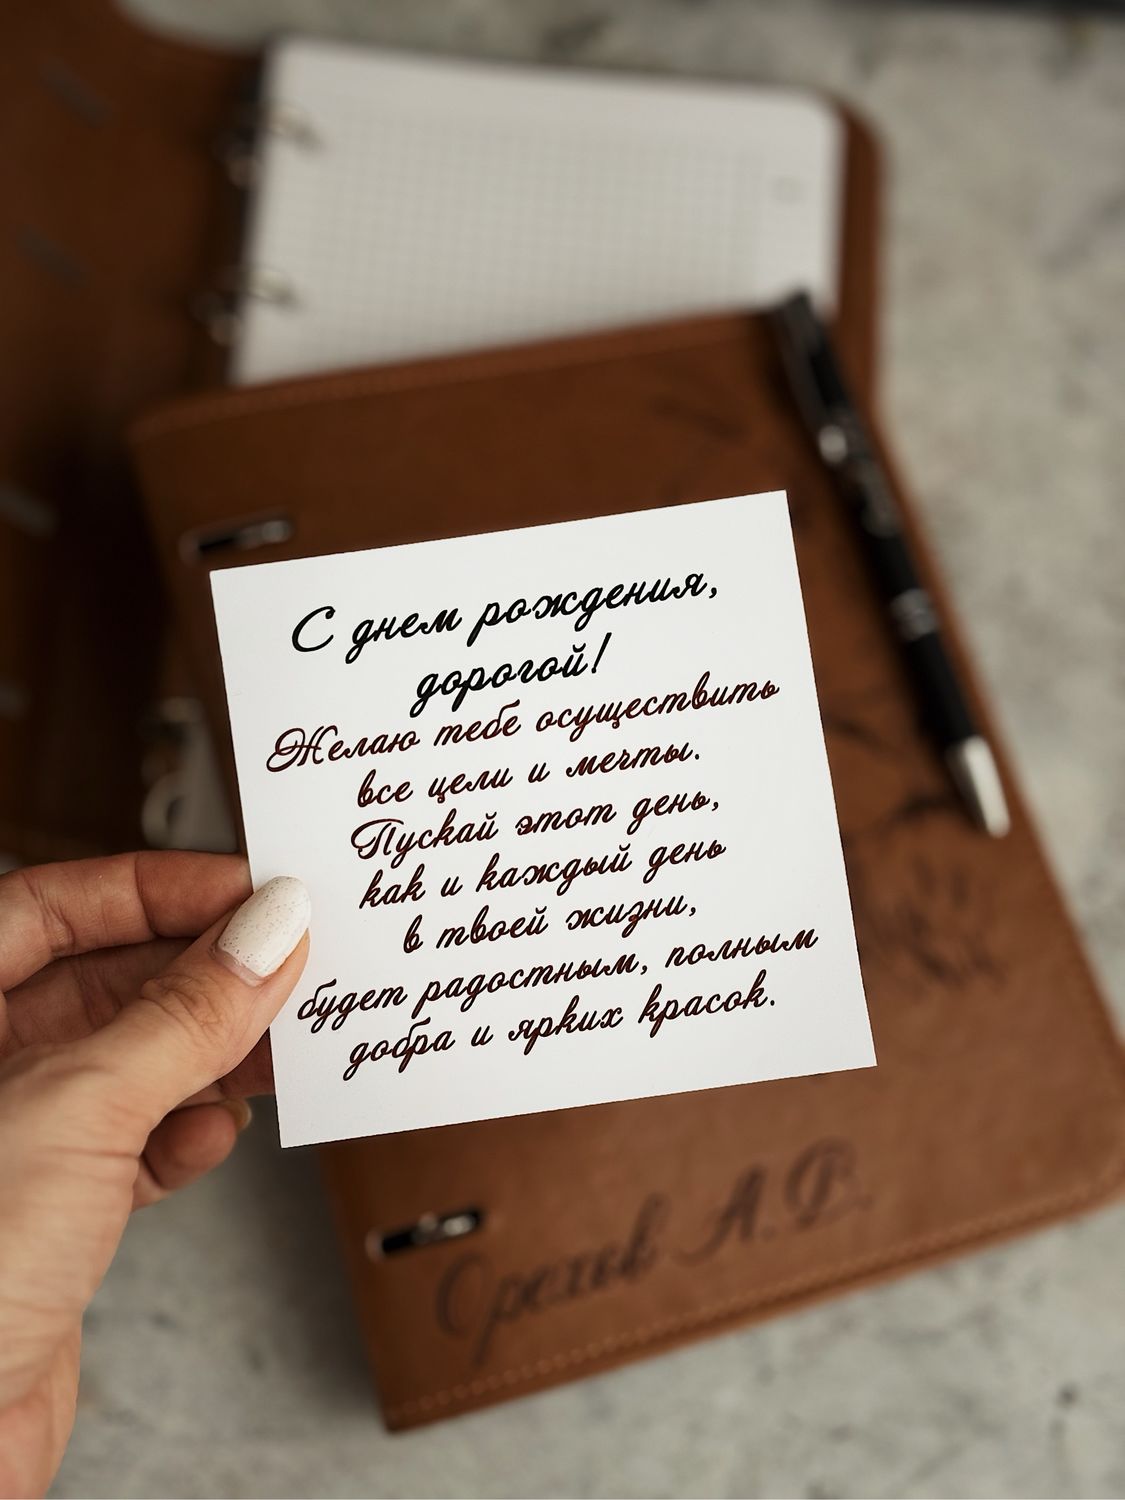 С днем рождения,
дорогой!
Желаю тебе осуществить
все цели и мечты.
Пускай этот день,
как и каждый день
в твоей жизни,
будет радостным, полным
добра и ярких красок.
Орехов А.В.